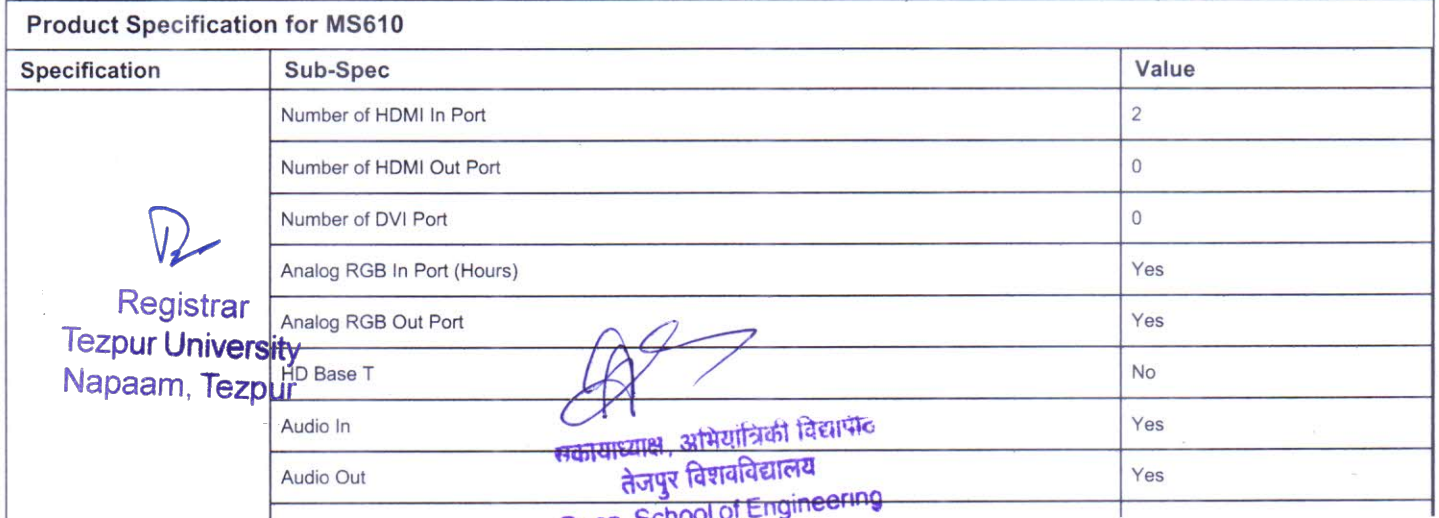 Product Specification for MS610
Specification Sub-Spec Value
Number of HDMI In Port 2
Number of HDMI Out Port 0
Number of DVI Port 0
Analog RGB In Port (Hours) Yes
Analog RGB Out Port Yes
HD Base T No
Audio In Yes
Audio Out Yes
Registrar
Tezpur University
Napaam, Tezpur
अभियांत्रिकी विद्यापीठ
तेजपुर विशवविद्यालय
School of Engineering